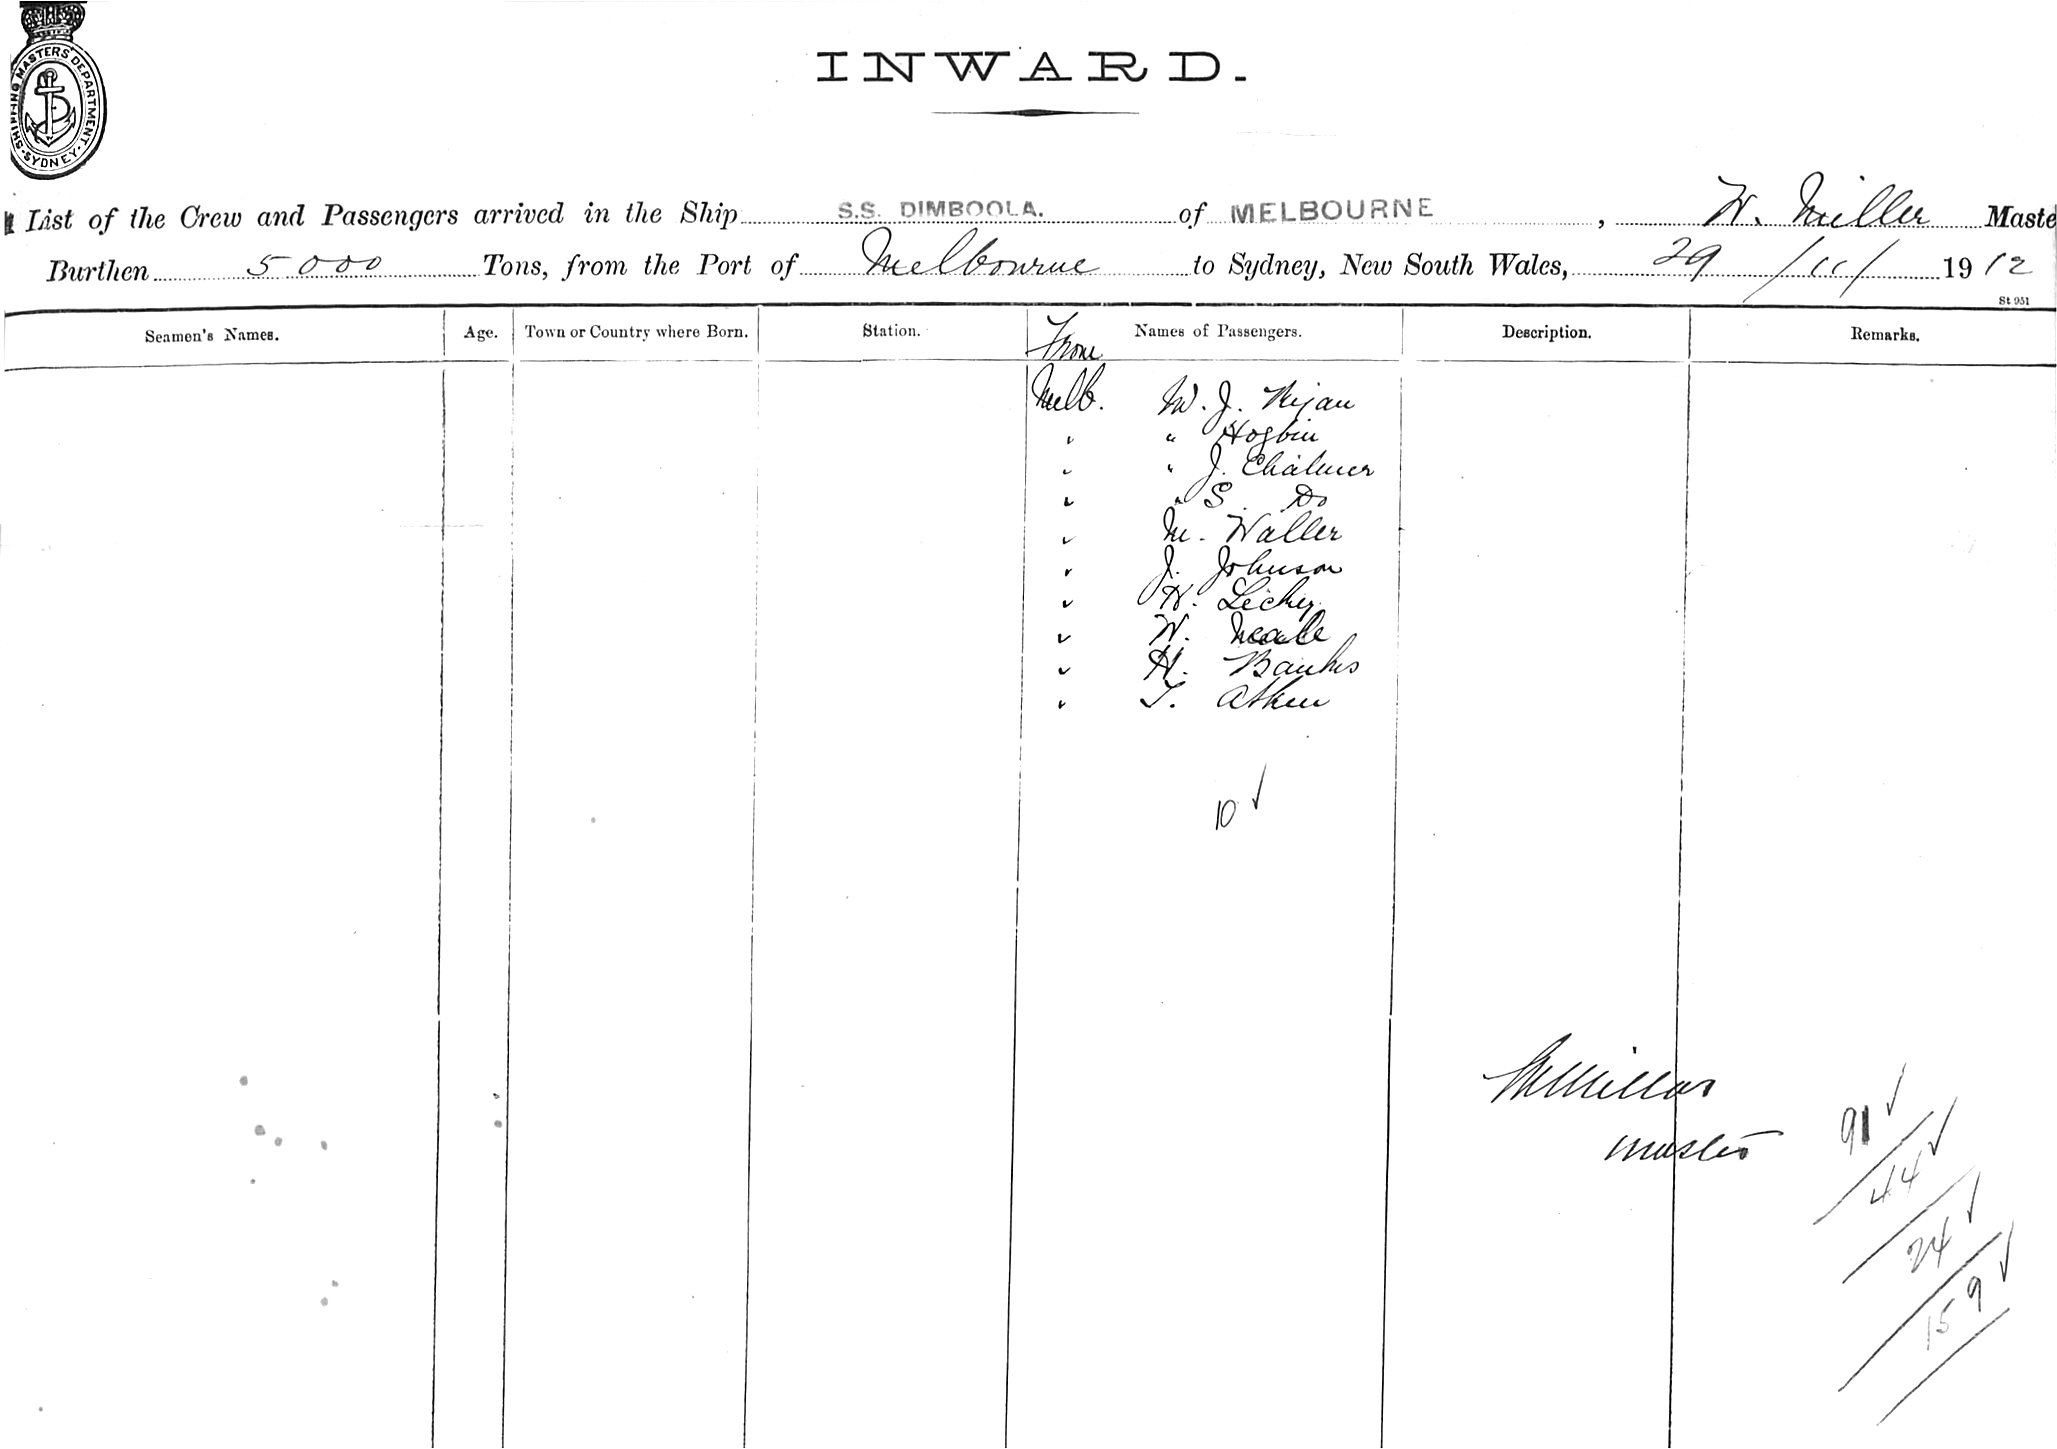 SHIPPING MASTERS DEPARTMENT. SYDNEY.
INWARD.
List of the Crew and Passengers arrived in the Ship S.S. DIMBOOLA. of MELBOURNE, W. Miller Maste
Burthen 5000 Tons, from the Port of Melbourne to Sydney, New South Wales, 29/11/1912
St 951
Seamen's Names. Age. Town or Country where Born. Station. From Names of Passengers. Description. Remarks.
Melb. M. J.
" " Hogbin
" " J. Chalmer
" " S. Do
" M. Waller
" J. Johnson
" H. Lecky
" W. Neale
" H. Banks
" T. Atken
10 ✓
master
91 ✓
44 ✓
24 ✓
159 ✓